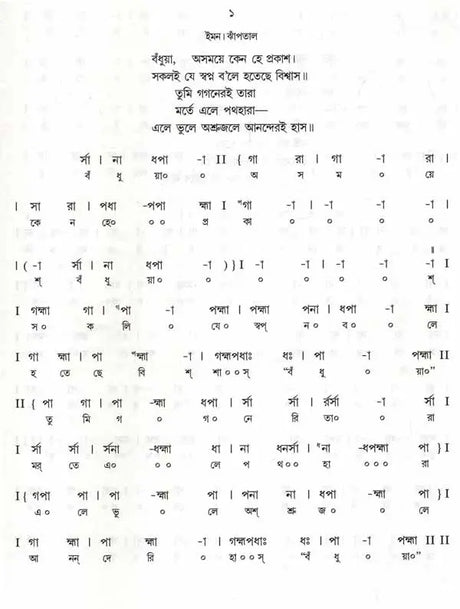 ১
ইমন। ঝাঁপতাল
বঁধুয়া, অসময়ে কেন হে প্রকাশ।
সকলই যে স্বপ্ন ব'লে হতেছে বিশ্বাস॥
তুমি গগনেরই তারা
মর্তে এলে পথহারা—
এলে ভুলে অশ্রুজলে আনন্দেরই হাস॥
র্সা । না ধপা -া II { গা রা । গা -া রা ।
বঁ ধু য়া০ ০ অ স ম ০ য়ে
। সা রা । পধা -পপা হ্মা I ᵍগা -া । -া -া -া ।
কে ন হে০ ০ ০ প্র কা ০ ০ ০ ০
॥
। ( -া র্সা । না ধপা -া ) } I -া -া । -া -া -া I
শ্ বঁ ধু য়া০ ০ ০ ০ ০ ০ শ্
I গহ্মা গা । পা -া পহ্মা । পহ্মা পনা । ধপা -া হ্মা I
স০ ক লি ০ যে০ স্বপ্ ন০ ব০ ০ লে
I গা হ্মা । পা হ্মা -া । গহ্মপধাঃ ধঃ । পা -া পহ্মা II
হ তে ছে বি শ্ শা০০স্ "বঁ ধু ০ য়া০"
II { পা গা । পা -হ্মা ধপা । র্সা র্সা । র্রর্সা -া র্সা I
তু মি গ ০ গ০ নে রি তা০ ০ রা
I র্সা র্সা । র্সনা -ধহ্মা ধা । না ধনর্সা । না -ধপহ্মা পা } I
মর্ তে এ০ ০০ লে প থ০০ হা ০০০ রা
I { গপা পা । পা -হ্মা পা । পনা না । ধপা -হ্মা পা } I
এ০ লে ভু ০ লে অশ্ শ্রু জ০ ০ লে
I গা হ্মা । পা হ্মা -া । গহ্মপধাঃ ধঃ । পা -া পহ্মা II II
আ নন্ দে রি ০ হা০০স্ "বঁ ধু ০ য়া০"